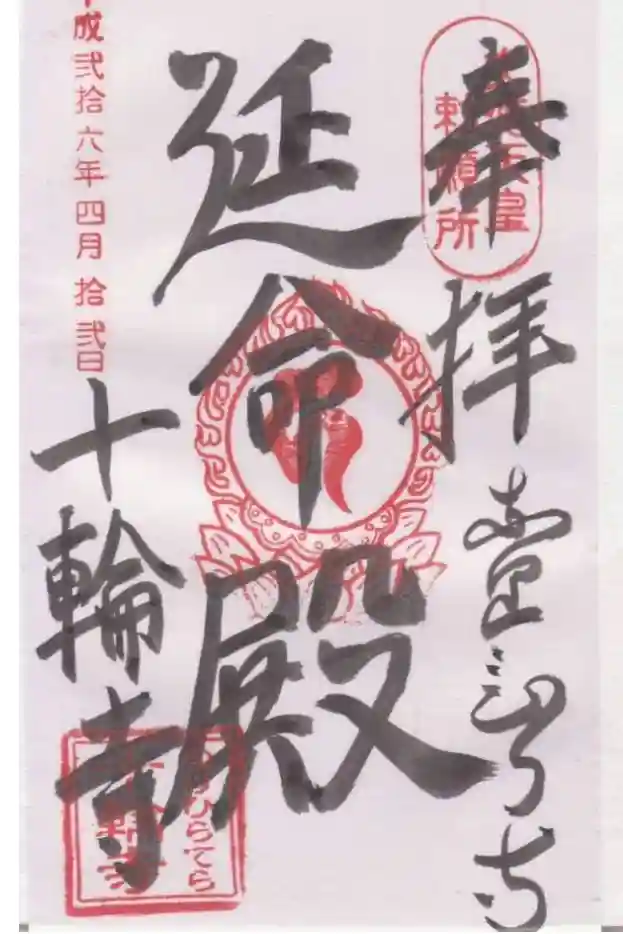 奉拝
文徳天皇
勅願所
延命殿
平成弐拾六年四月拾弐日
十輪寺
なりひらてら
十輪寺